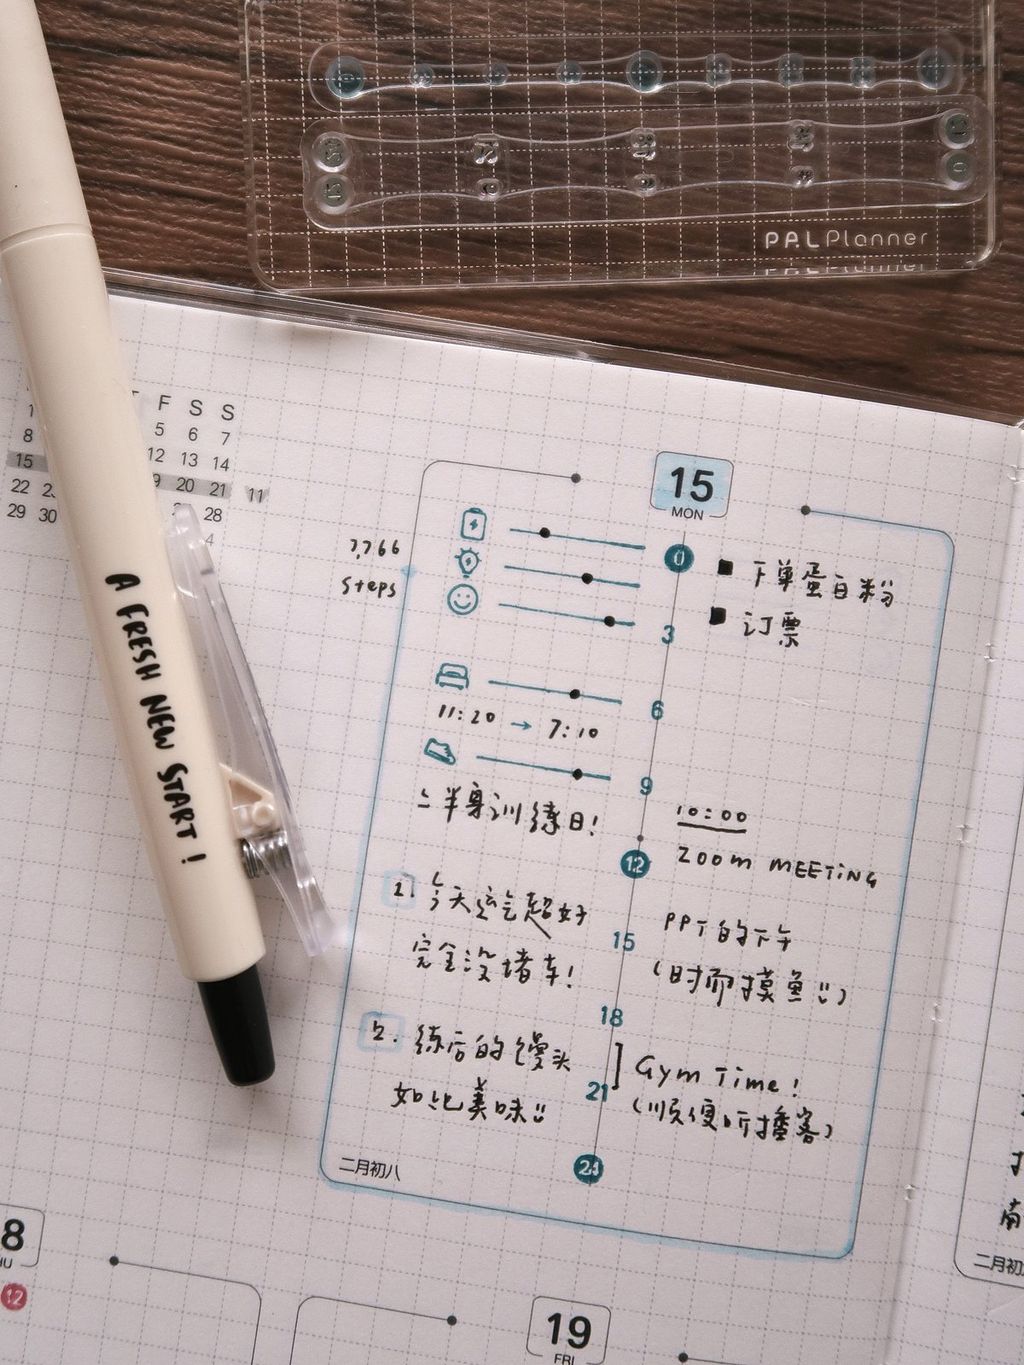 PALPlanner
A FRESH NEW START!
F S S
1 5 6 7
8 12 13 14
15 20 21 11
22 28
29 30 4
15
MON
7,766
steps
0
3
6
9
12
15
18
21
24
11:20 → 7:10
上半身训练日!
1. 今天运气超好
完全没堵车!
2. 练后的馒头
如此美味
二月初八
■ 下单蛋白粉
■ 订票
10:00
ZOOM MEETING
PPT的下午
(时而摸鱼)
Gym Time!
(顺便听播客)
8
12
19
FRI
二月初